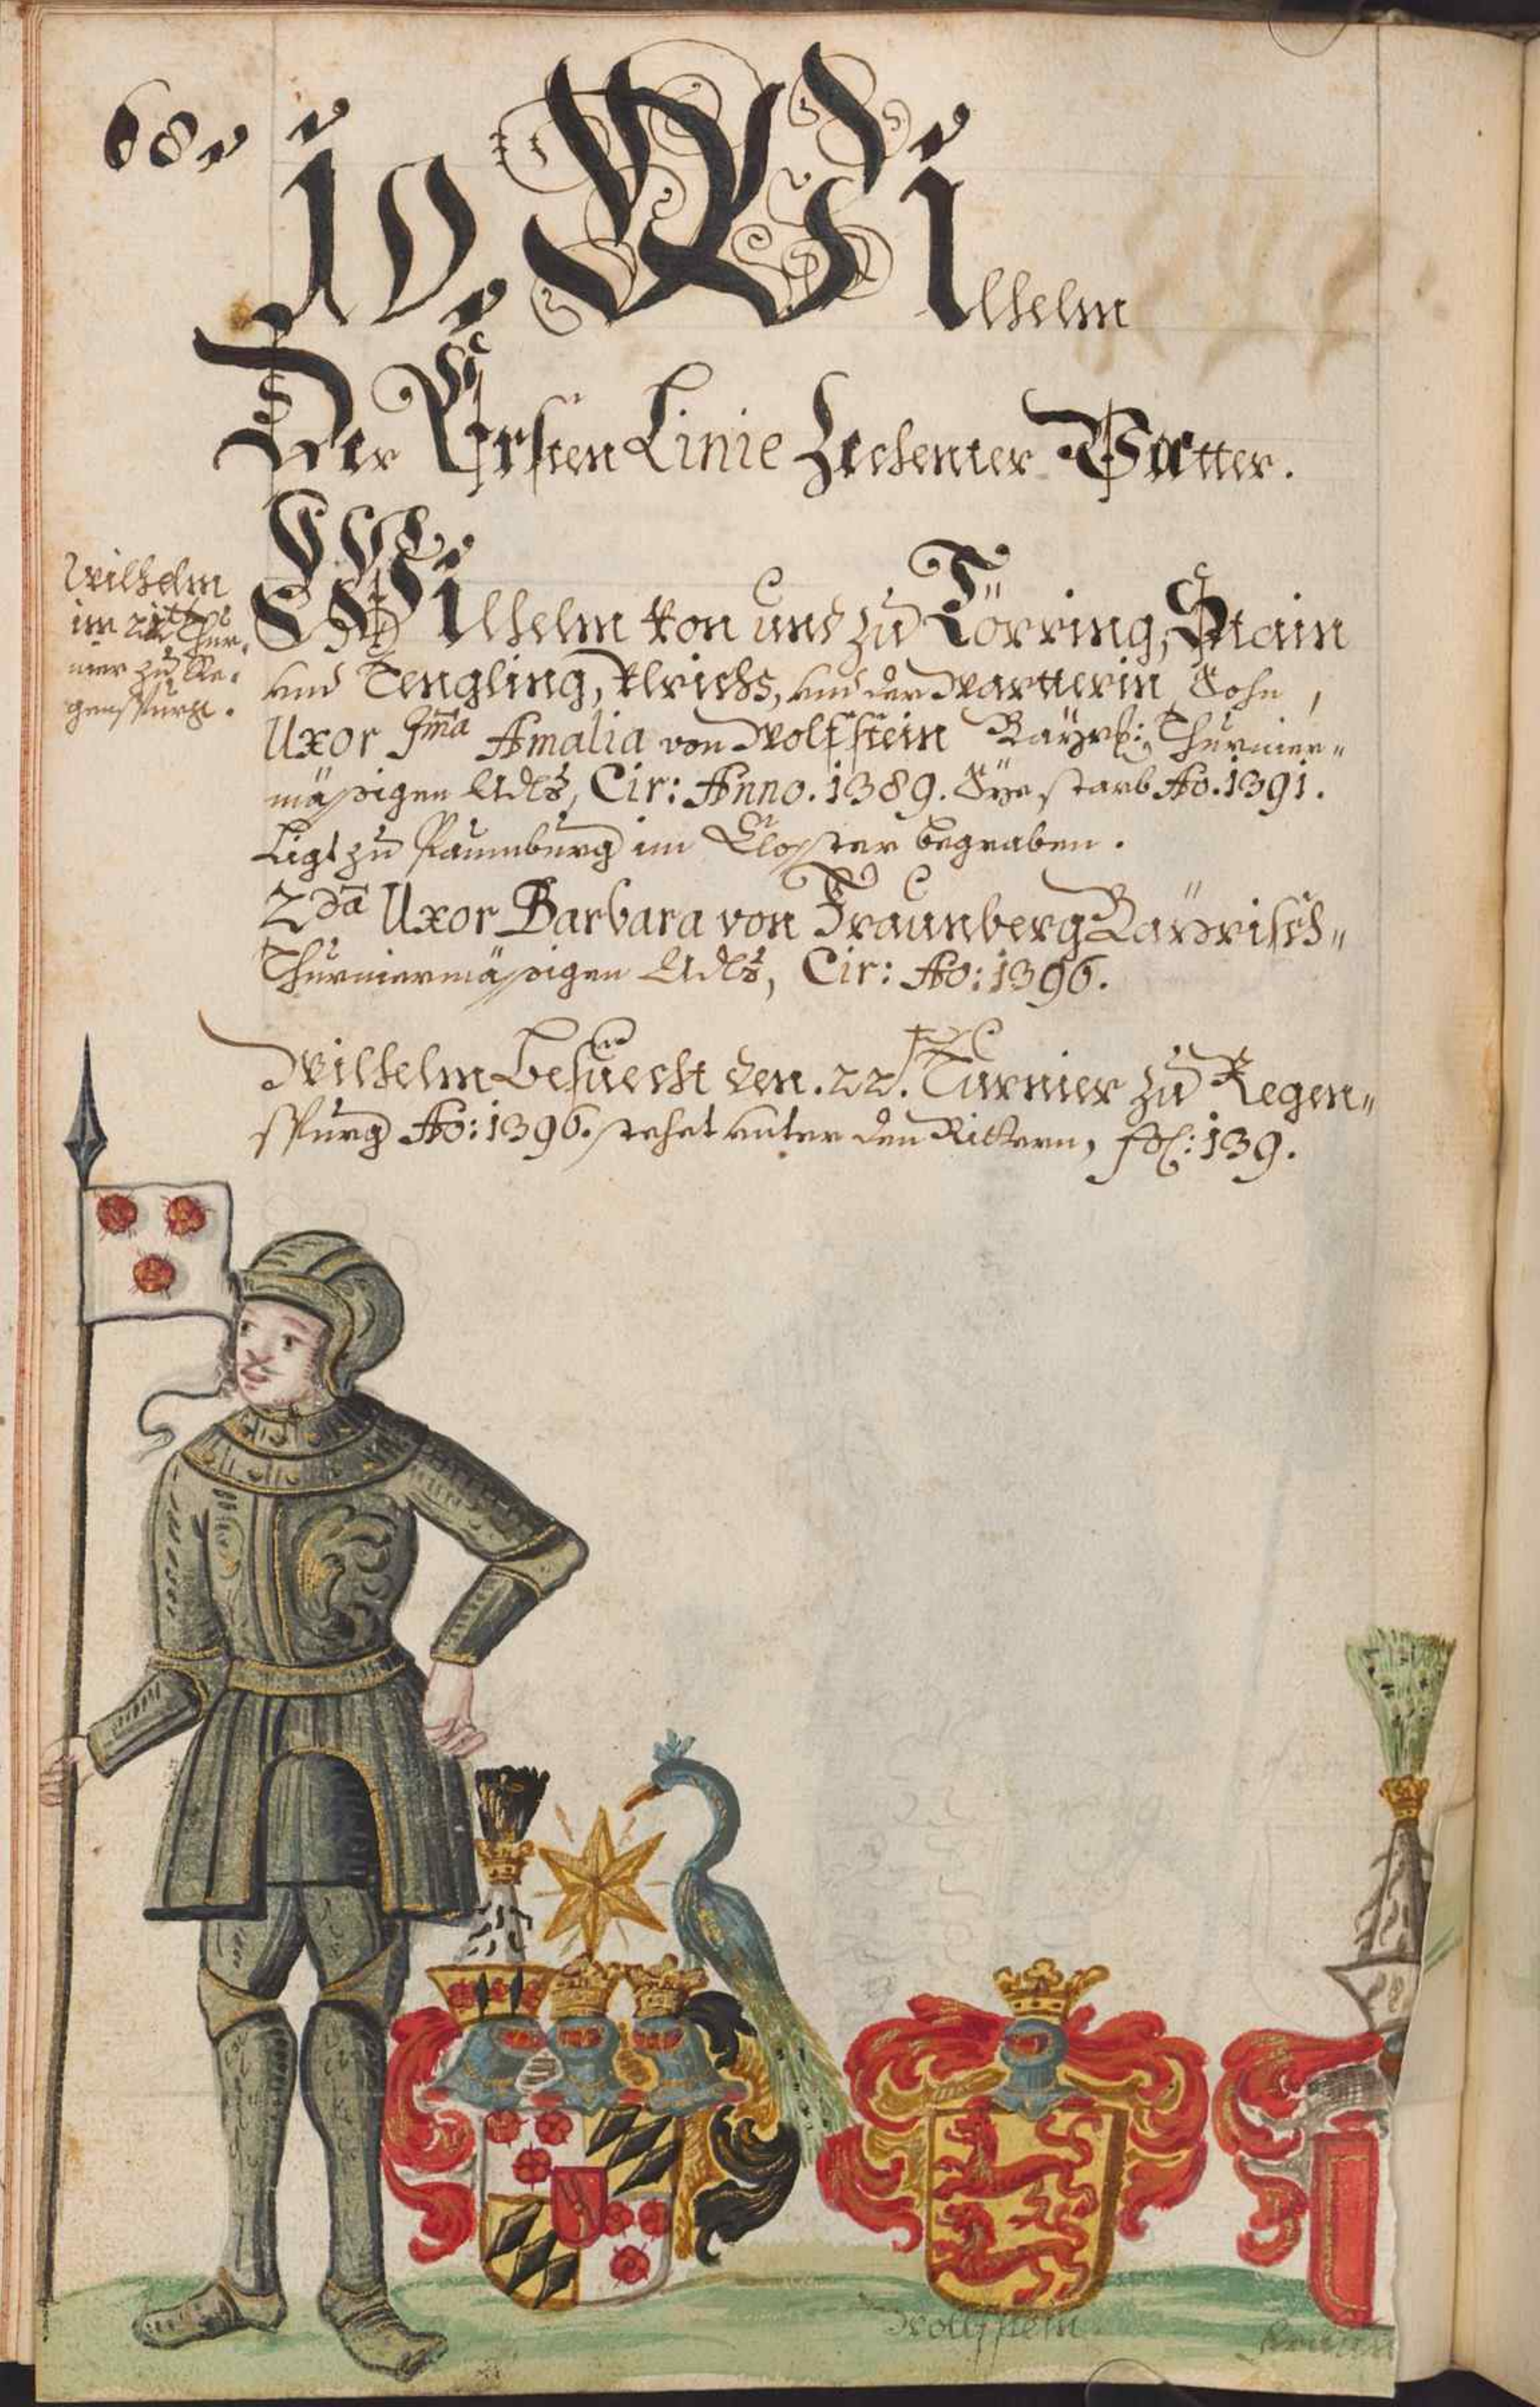 68.
10. Wilhelm
Der Ersten Linie Zechenter Vatter.
Wilhelm
im 22ten Thur-
nier zu Re-
genspurg.
Wilhelm von und zu Törring, Stain
und Tengling, Ulrichs, und der Wartterin Sohn,
Uxor Ima Amalia von Wolfstein Bayrs: Thurnier-
mäßigen Adls, Cir: Anno. 1389. Sye starb Ao. 1391.
Ligt zu Paumburg im Closter begraben.
2da Uxor Barbara von Fraunberg Bayrisch-
Thurniermäßigen Adls, Cir: Ao: 1396.
Wilhelm besuecht den. 22. Turnier zu Regen-
spurg Ao: 1396. stehet unter den Rittern, fol: 139.
Wolfstein